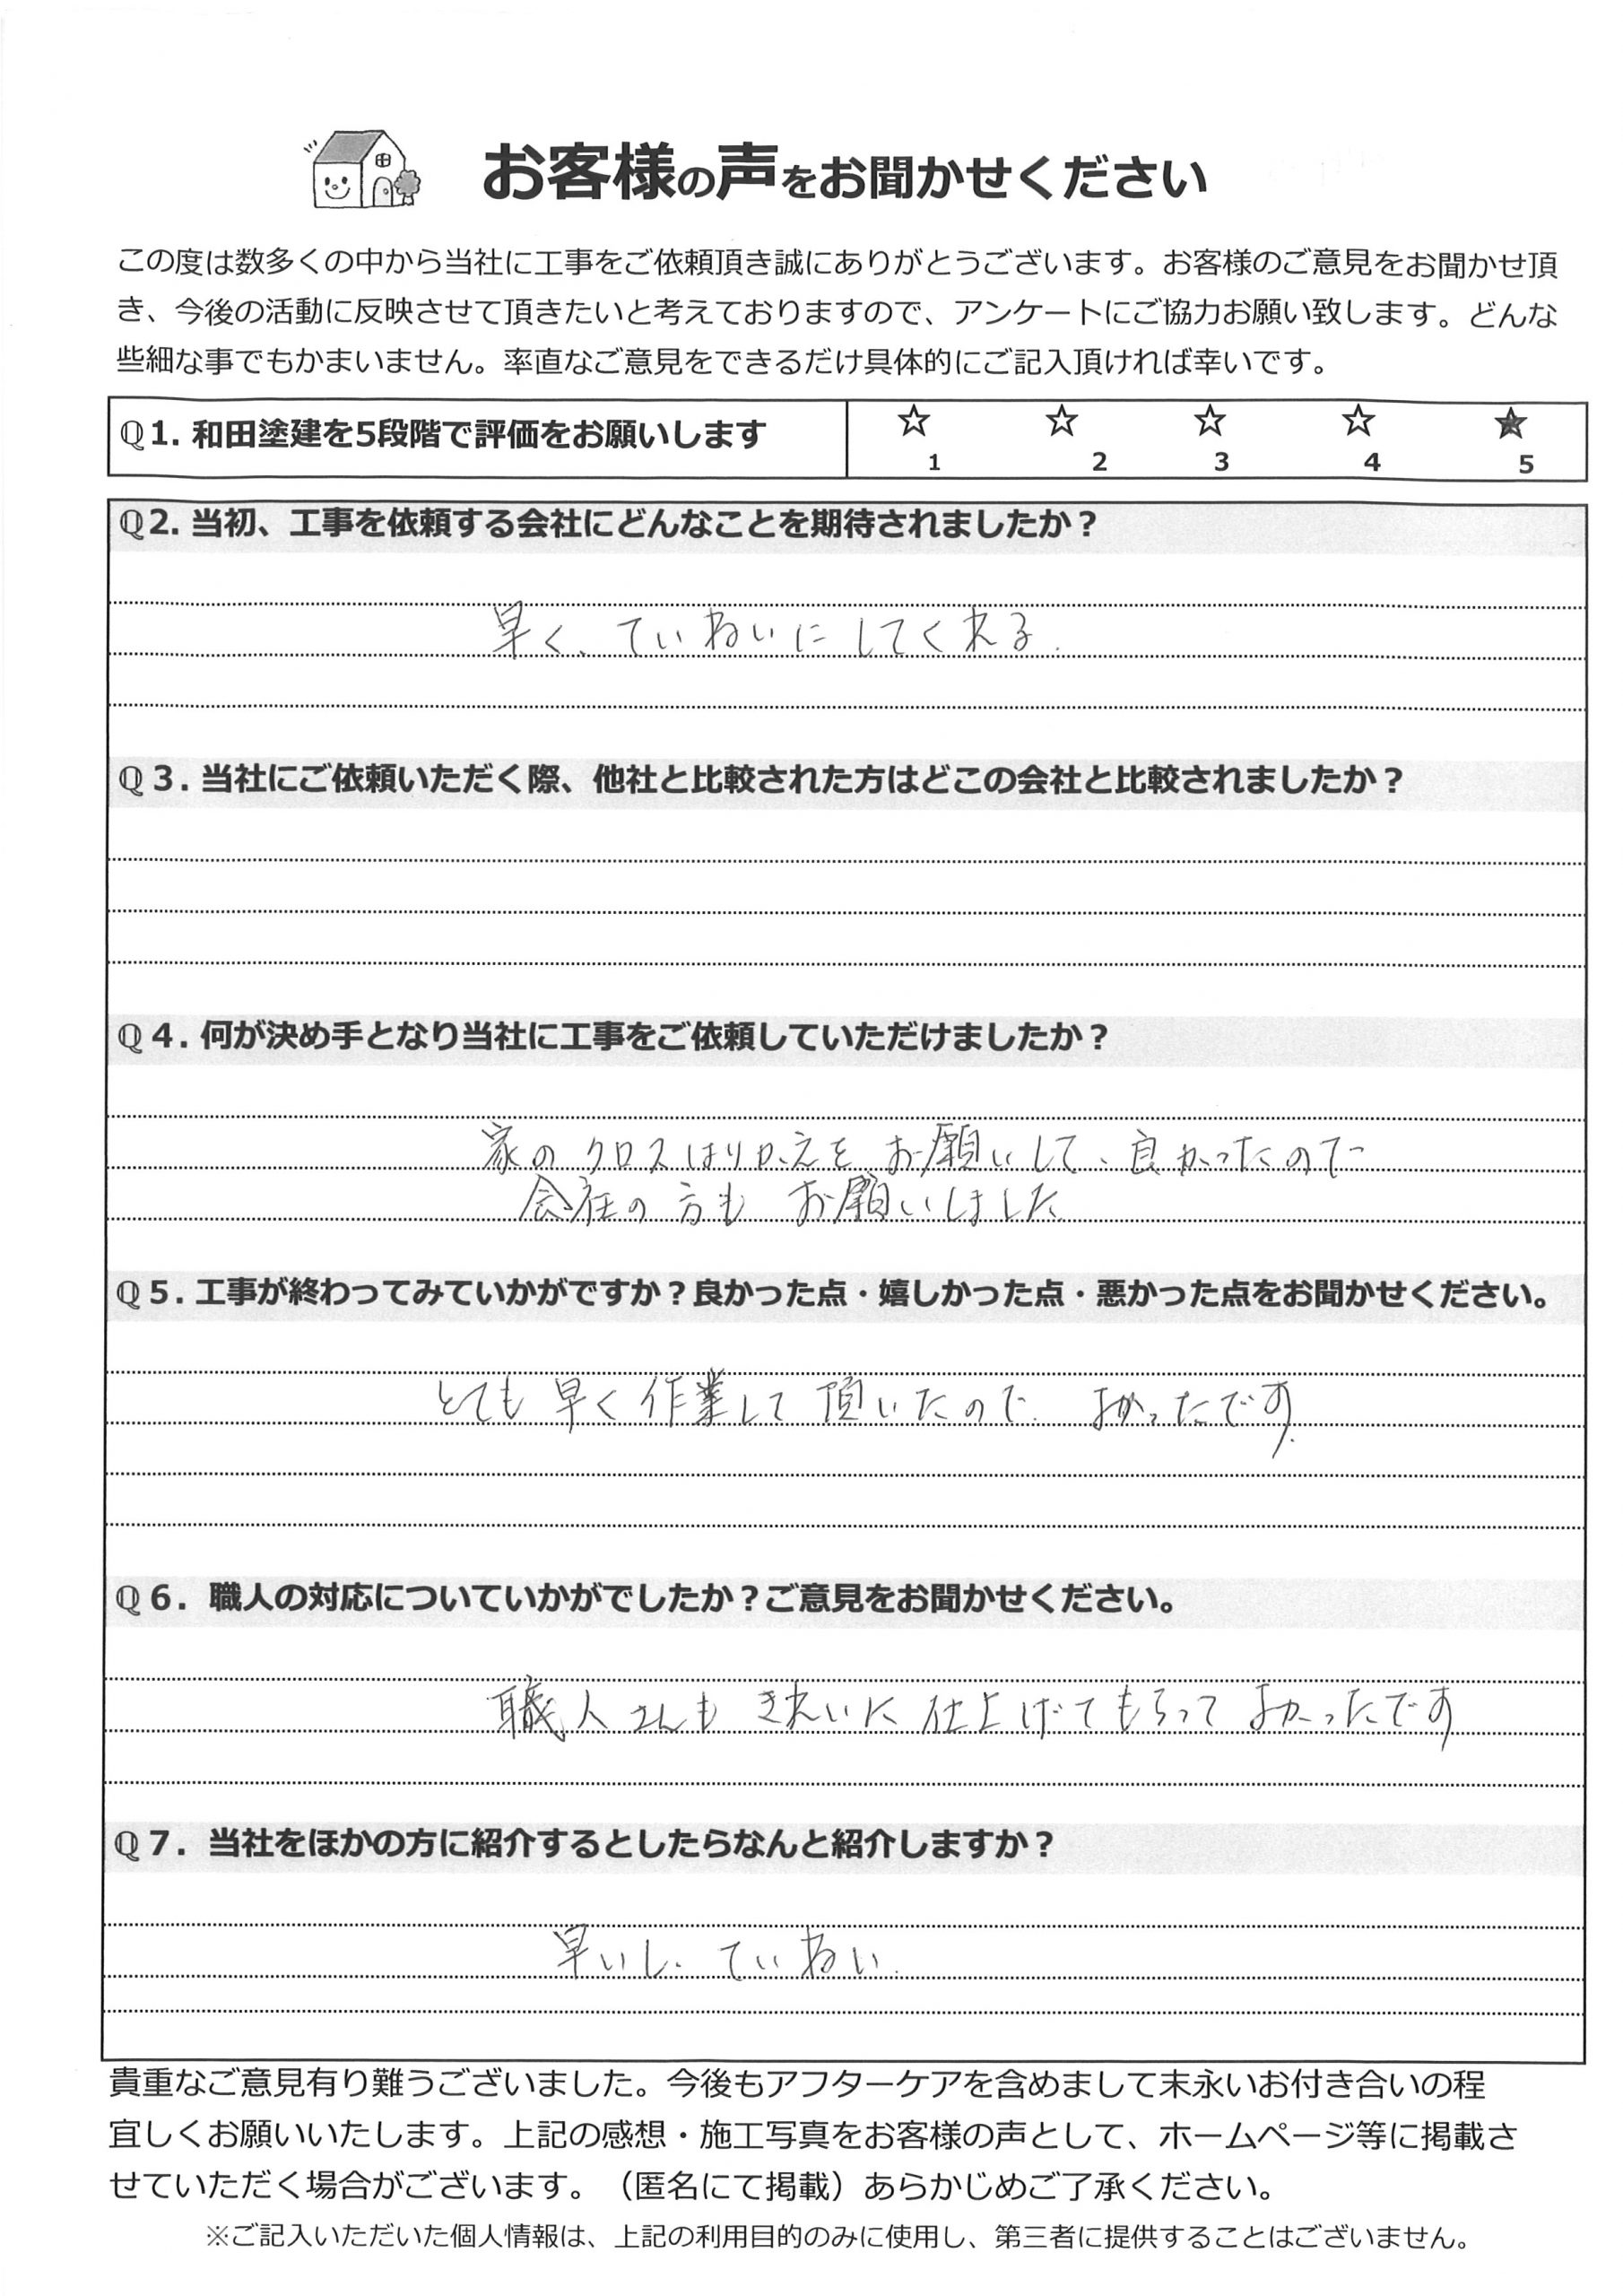 お客様の声をお聞かせください
この度は数多くの中から当社に工事をご依頼頂き誠にありがとうございます。お客様のご意見をお聞かせ頂
き、今後の活動に反映させて頂きたいと考えておりますので、アンケートにご協力お願い致します。どんな
些細な事でもかまいません。率直なご意見をできるだけ具体的にご記入頂ければ幸いです。
Q1. 和田塗建を5段階で評価をお願いします ☆ ☆ ☆ ☆ ★
1 2 3 4 5
Q2. 当初、工事を依頼する会社にどんなことを期待されましたか？
早く、ていねいにしてくれる.
Q3. 当社にご依頼いただく際、他社と比較された方はどこの会社と比較されましたか？
Q4. 何が決め手となり当社に工事をご依頼していただけましたか？
家のクロスはりかえをお願いして、良かったので
会社の方もお願いしました
Q5. 工事が終わってみていかがですか？良かった点・嬉しかった点・悪かった点をお聞かせください。
とても早く作業して頂いたので、よかったです.
Q6. 職人の対応についていかがでしたか？ご意見をお聞かせください。
職人さんもきれいに仕上げてもらってよかったです
Q7. 当社をほかの方に紹介するとしたらなんと紹介しますか？
早いし、ていねい.
貴重なご意見有り難うございました。今後もアフターケアを含めまして末永いお付き合いの程
宜しくお願いいたします。上記の感想・施工写真をお客様の声として、ホームページ等に掲載さ
せていただく場合がございます。（匿名にて掲載）あらかじめご了承ください。
※ご記入いただいた個人情報は、上記の利用目的のみに使用し、第三者に提供することはございません。